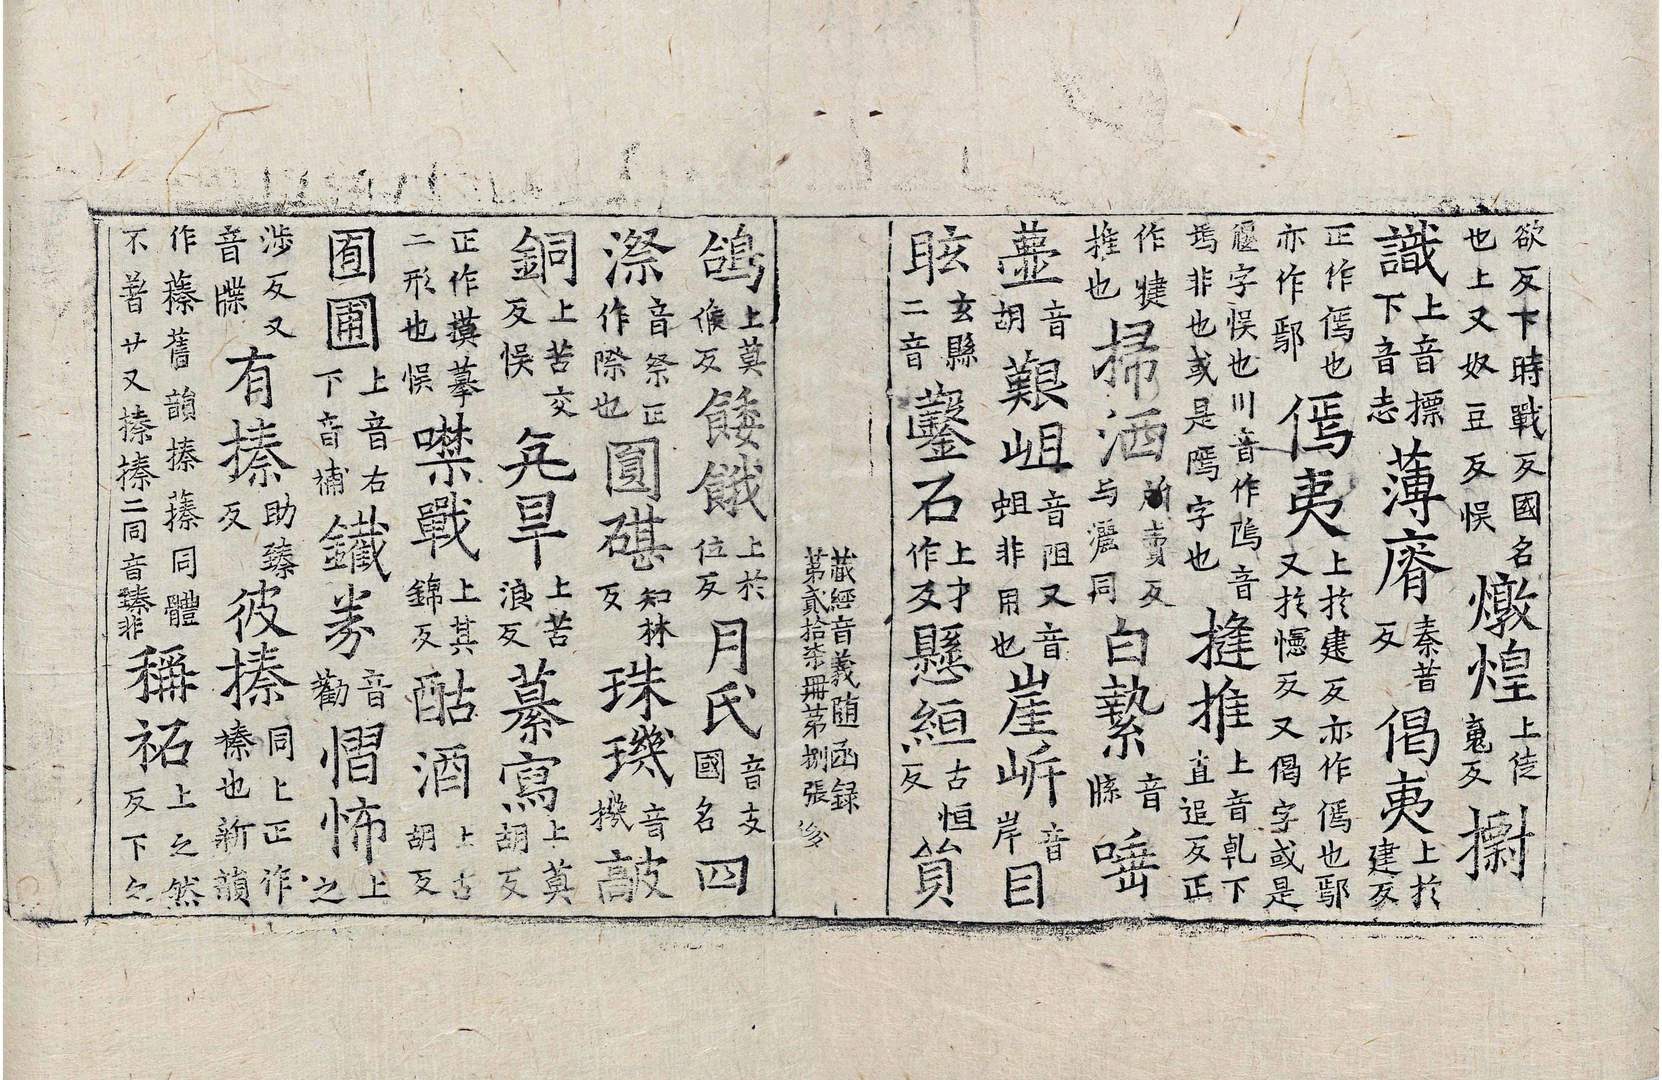 欲反下時戰反國名也上又奴豆反悮燉煌上徒䰟反
識上音摽下音志薄㾊秦昔反偈夷上於建反
正作傿也亦作鄢傿夷上於建反亦作傿也鄢又於憶反又偈字或是
字悮也川音作隖音塢非也或是隖字也揵推上音乹下直追反正
作揵推也掃洒所賣反与灑同白縶音牒唾
壺音胡艱岨音阻又音蛆非用也崖㟁音岸目
眩玄縣二音鑿石上才作反懸絙古恒反篔
藏經音義随函録
第貳拾柒冊第捌張 修
鴿上莫候反餧餓上於位反月氏音支國名四
漈音祭正作際也圓碪知林反珠璣音機敲
銅上苦交反悮旱上苦浪反摹寫上莫胡反
正作摸摹二形也悮噤戰上其錦反酤酒上古胡反
囿圃上音右下音補鐵券音勸慴怖上之
涉反又音牒有搸助臻反彼搸同上正作榛也新韻
作蓁舊韻搸蓁同體不著廿又搸搸二同音臻非稱祏上之然反下之